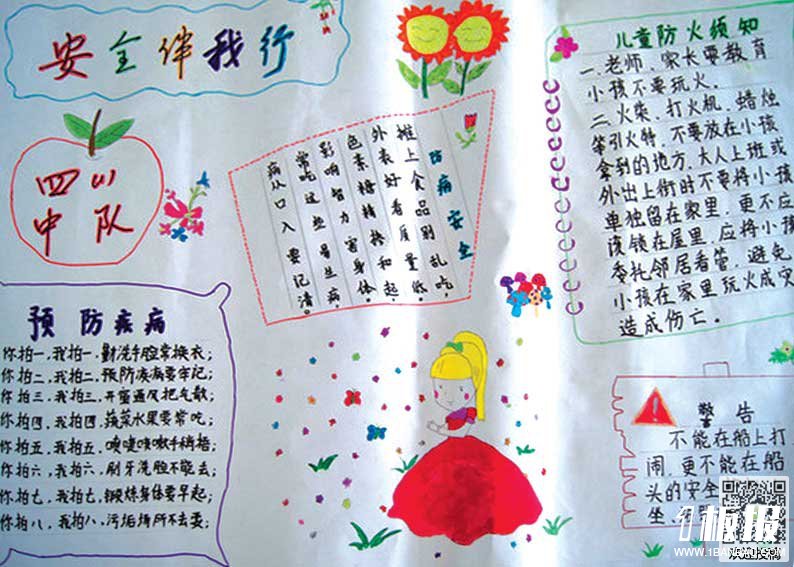 安全伴我行
四(1)
中队
防病安全
摊上食品别乱吃,
外表好看质量低。
色素糖精掺和起,
影响智力害身体。
常吃这些易生病,
病从口入要记清。
儿童防火须知
一.老师、家长要教育
小孩不要玩火.
二.火柴.打火机.蜡烛
等引火特.不要放在小孩
拿到的地方.大人上班或
外出上街时不要将小孩
单独留在家里.更不应
该锁在屋里.应将小孩
委托邻居看管.避免
小孩在家里玩火成灾
造成伤亡.
预防疾病
你拍一,我拍一.勤洗手脸常换衣;
你拍二,我拍二.预防疾病要牢记;
你拍三,我拍三.开窗通风把气散;
你拍四,我拍四.蔬菜水果要常吃;
你拍五,我拍五.喷嚏咳嗽手绢捂;
你拍六,我拍六.刷牙洗脸不能去;
你拍七,我拍七.锻炼身体要早起;
你拍八,我拍八.污垢场所不去耍;
警告
不能在船上打
闹.更不能在船
头的安全
坐.
1板报
WWW.1BANBAO.COM